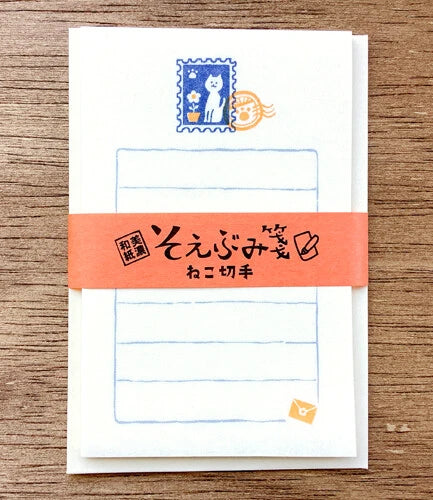 美濃
和紙
そえぶみ箋
ねこ切手